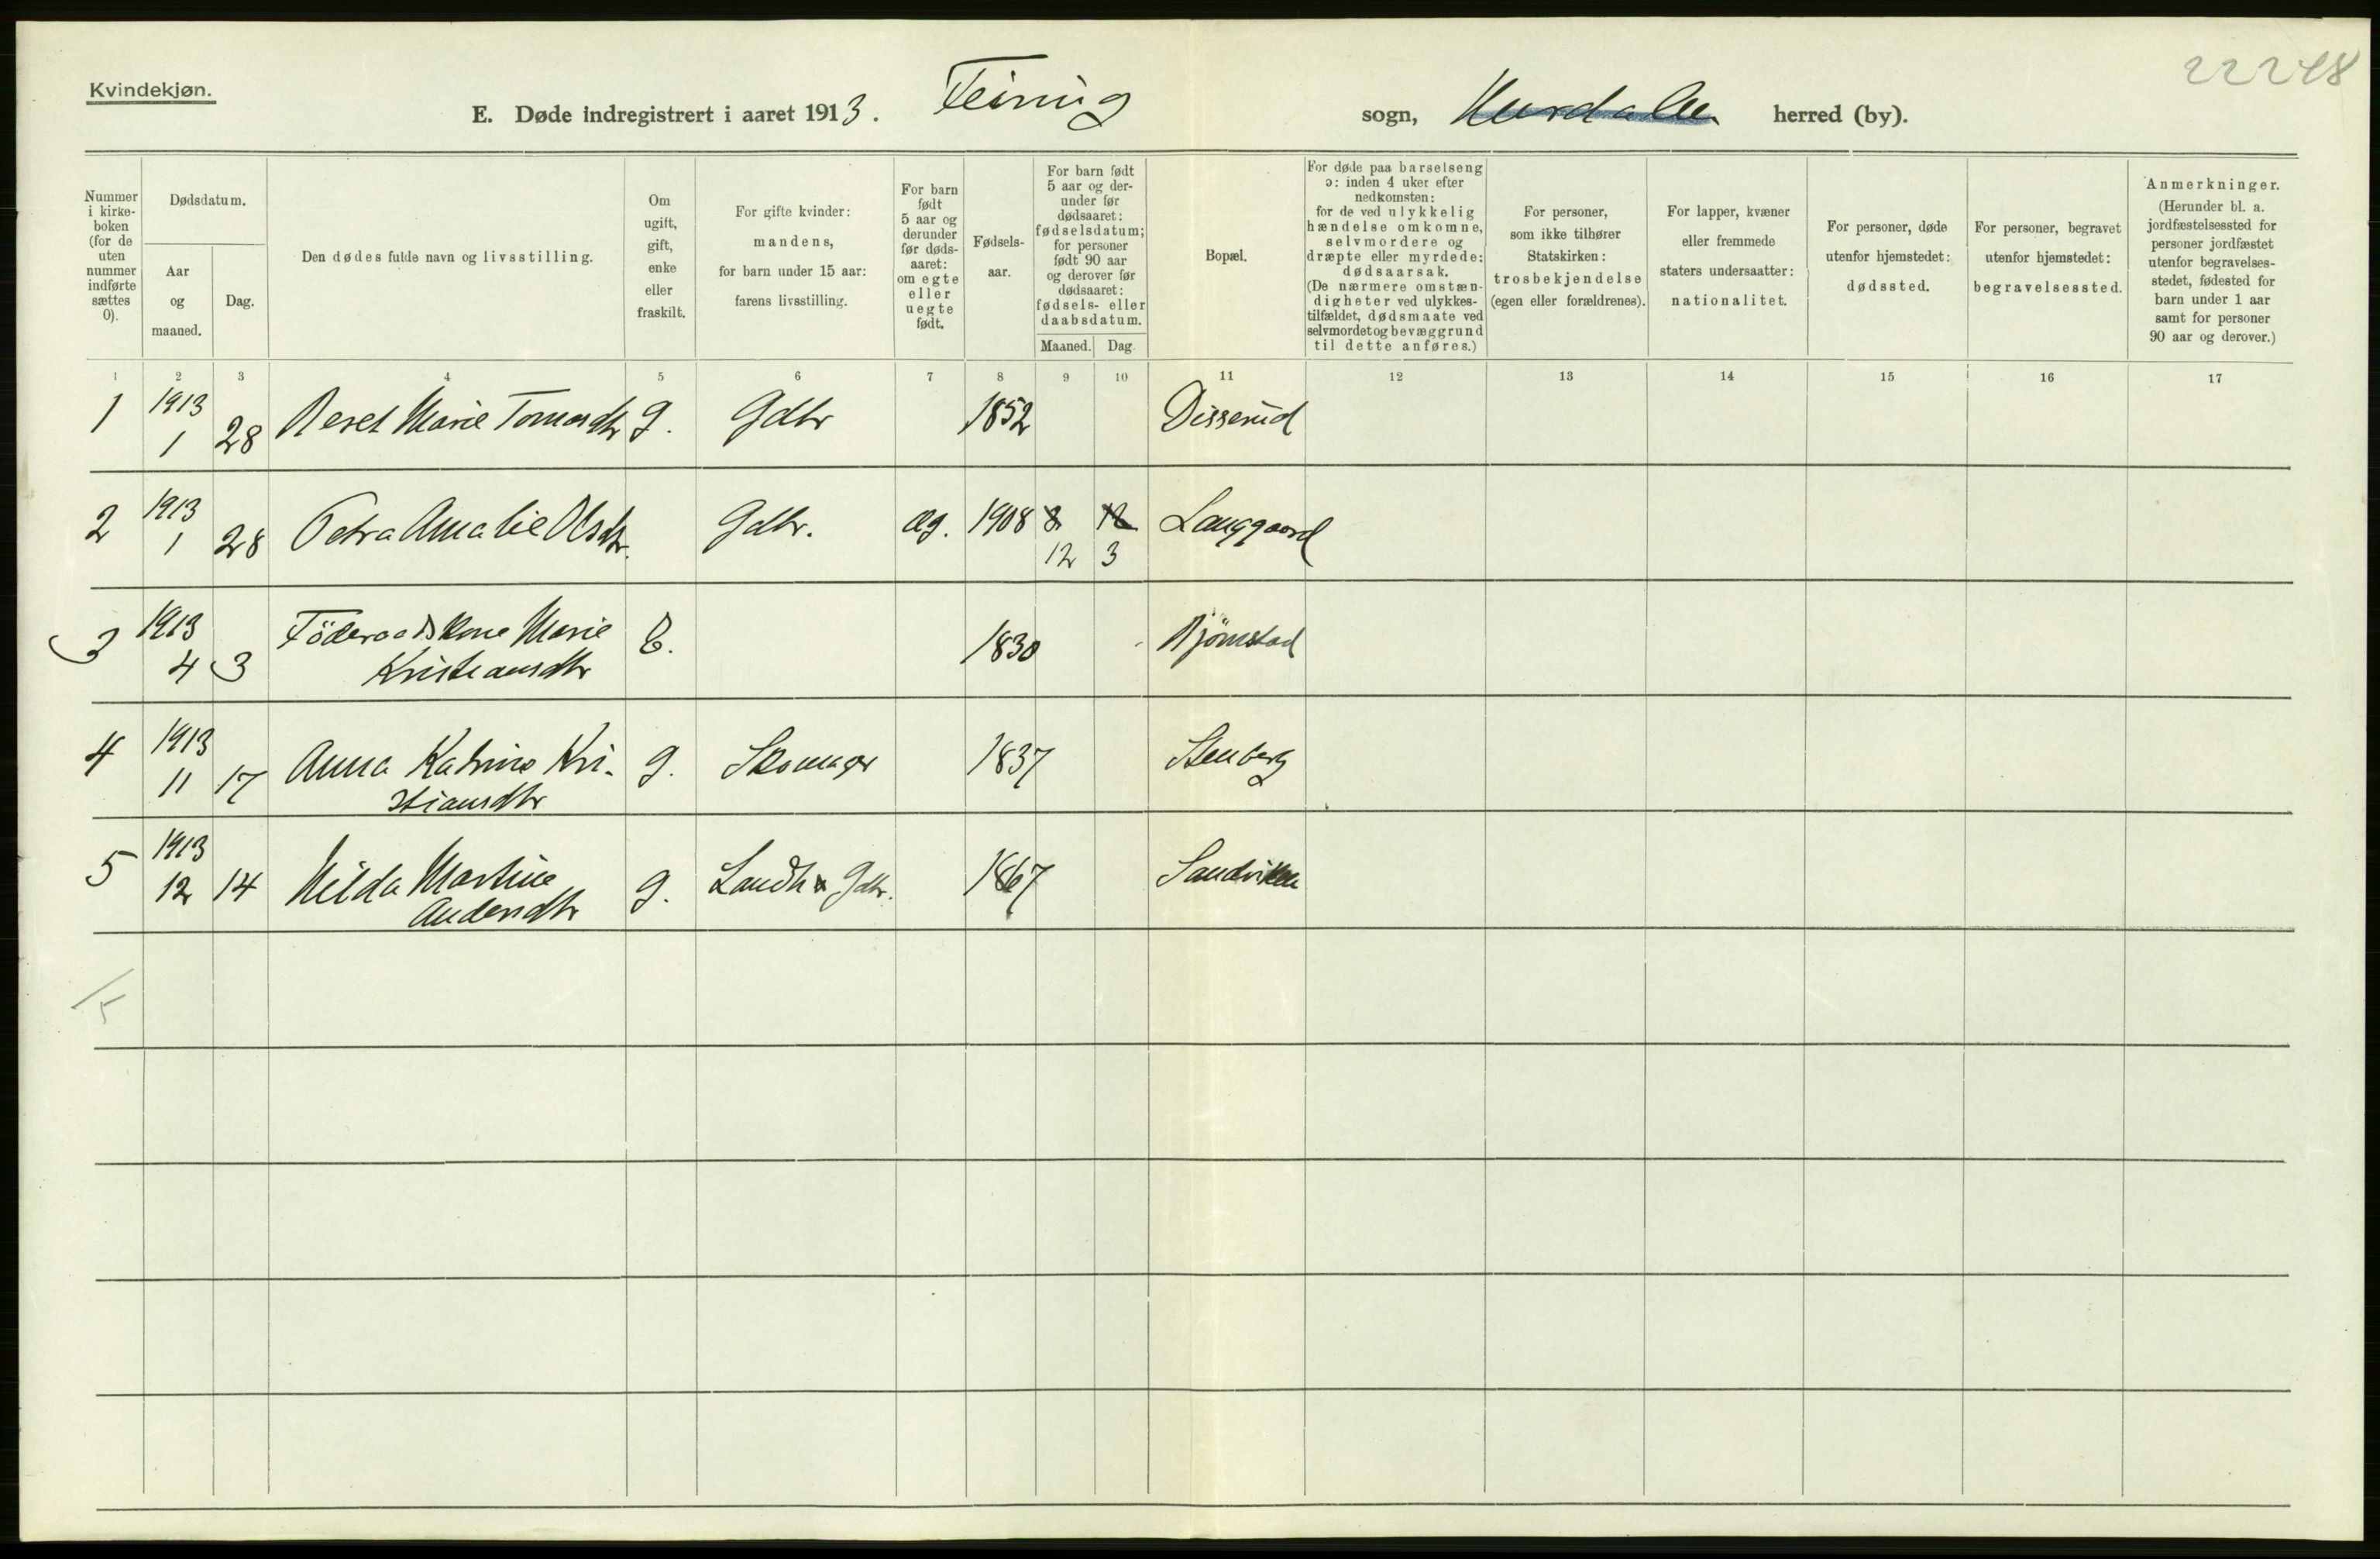 22248
Kvindekjøn.
E. Døde indregistrert i aaret 1913. Feiring sogn, Hurdalen herred (by).
Nummer i kirke-boken (for de uten nummer indførte sættes 0).
Dødsdatum.
Aar og maaned.
Dag.
Den dødes fulde navn og livsstilling.
Om ugift, gift, enke eller fraskilt.
For gifte kvinder: mandens, for barn under 15 aar: farens livsstilling.
For barn født 5 aar og derunder før døds-aaret: om egte eller uegte født.
Fødsels-aar.
For barn født 5 aar og der-under før dødsaaret: fødselsdatum; for personer født 90 aar og derover før dødsaaret: fødsels- eller daabsdatum.
Maaned. Dag.
Bopæl.
For døde paa barselseng ɔ: inden 4 uker efter nedkomsten: for de ved ulykkelig hændelse omkomne, selvmordere og dræpte eller myrdede: dødsaarsak. (De nærmere omstæn-digheter ved ulykkes-tilfældet, dødsmaate ved selvmordet og bevæggrund til dette anføres.)
For personer, som ikke tilhører Statskirken: trosbekjendelse (egen eller forældrenes).
For lapper, kvæner eller fremmede staters undersaatter: nationalitet.
For personer, døde utenfor hjemstedet: dødssted.
For personer, begravet utenfor hjemstedet: begravelsessted.
Anmerkninger. (Herunder bl. a. jordfæstelsessted for personer jordfæstet utenfor begravelses-stedet, fødested for barn under 1 aar samt for personer 90 aar og derover.)
1 2 3 4 5 6 7 8 9 10 11 12 13 14 15 16 17
1 1913 1 28 Marie Tomasdtr g. Gdbr 1852 Disserud
2 1913 1 28 Petra Amalie Olsdtr. Gdbr. æg. 1908 12 3 Langgaard
3 1913 4 3 Föderaadskone Marie Kristiansdtr E. 1830 Björnstad
4 1913 11 17 Anna Katrine Kri-stiansdtr g. Skomager 1837 Stenberg
5 1913 12 14 Hilda Martine Andersdtr g. Landh Gdbr. 1867 Sandviken
5